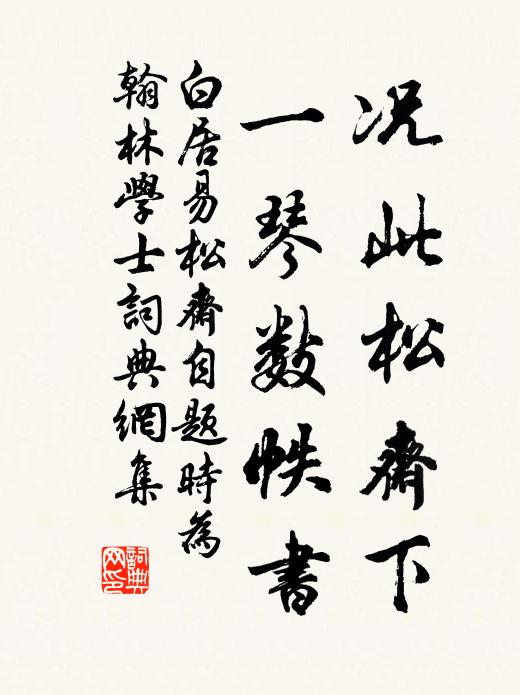 况此松齋下
一琴数帙書
白居易松齋自題時為
翰林學士詞典網集
詞典网印